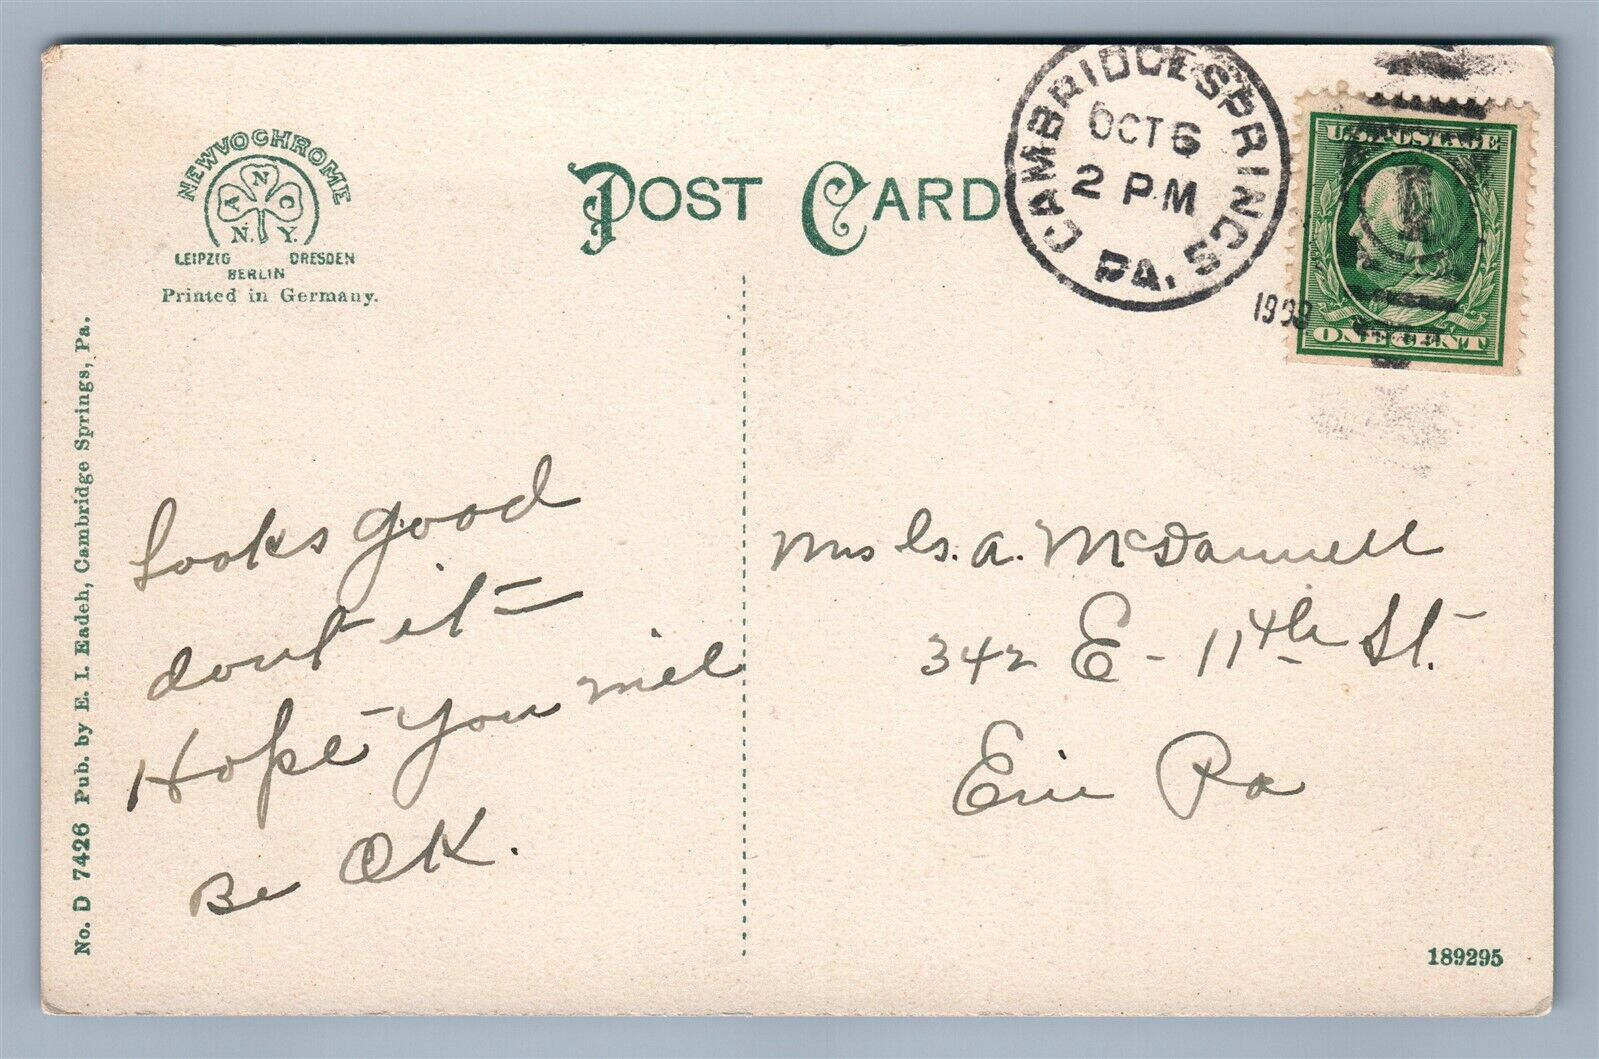 NEWVOCHROME
A N C
N. Y.
LEIPZIG DRESDEN
BERLIN
Printed in Germany.
POST CARD
CAMBRIDGE SPRINGS
OCT 6
2 PM
PA.
1909
U.S. POSTAGE
ONE CENT
No. D 7426 Pub. by E. I. Eadeh, Cambridge Springs, Pa.
Looks good
dont it
Hope you will
Be OK.
Mrs A. McDannell
342 E - 11th St.
Erie Pa
189295